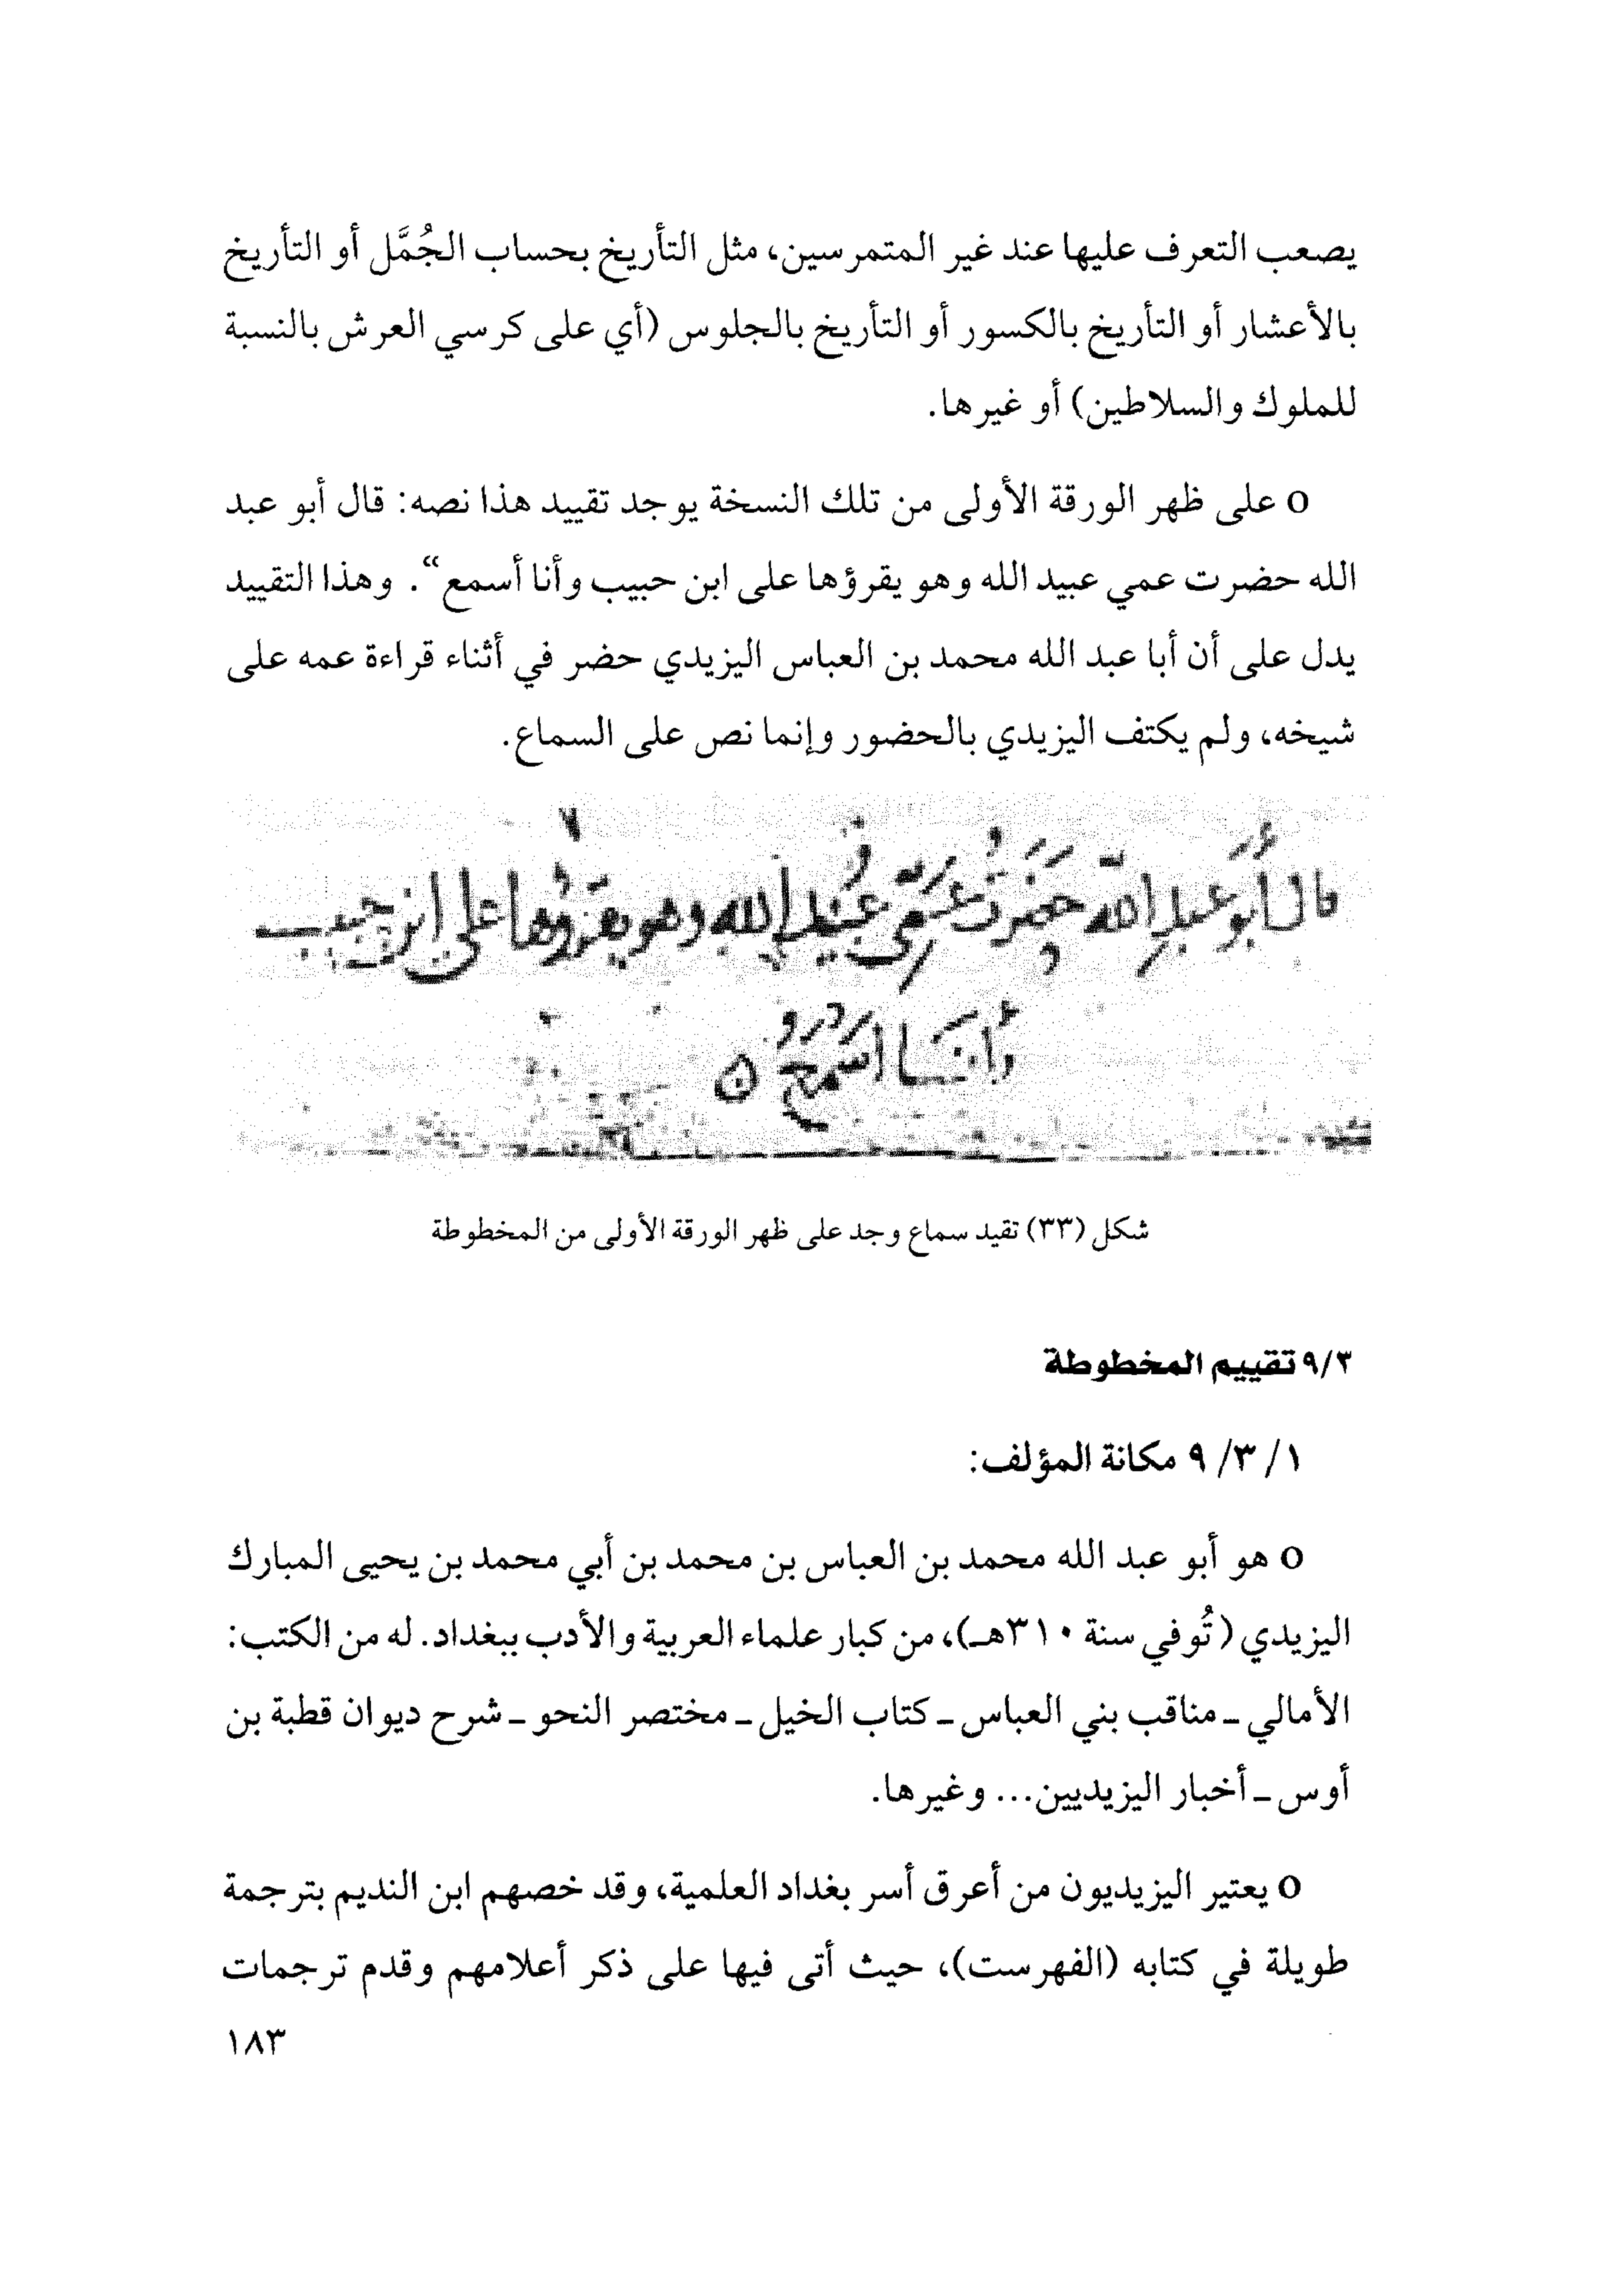 يصعب التعرف عليها عند غير المتمرسين، مثل التأريخ بحساب الجُمَّل أو التأريخ
بالأعشار أو التأريخ بالكسور أو التأريخ بالجلوس (أي على كرسي العرش بالنسبة
للملوك والسلاطين) أو غيرها.
o على ظهر الورقة الأولى من تلك النسخة يوجد تقييد هذا نصه: قال أبو عبد
الله حضرت عمي عبيد الله وهو يقرؤها على ابن حبيب وأنا أسمع“. وهذا التقييد
يدل على أن أبا عبد الله محمد بن العباس اليزيدي حضر في أثناء قراءة عمه على
شيخه، ولم يكتف اليزيدي بالحضور وإنما نص على السماع.
قال أبو عبد الله حضرت عمي عبيد الله وهو يقرؤها على ابن حبيب
وأنا أسمع
شكل (٣٣) تقيد سماع وجد على ظهر الورقة الأولى من المخطوطة
٩/٣ تقييم المخطوطة
١/ ٣/ ٩ مكانة المؤلف:
o هو أبو عبد الله محمد بن العباس بن محمد بن أبي محمد بن يحيى المبارك
اليزيدي (تُوفي سنة ٣١٠هـ)، من كبار علماء العربية والأدب ببغداد. له من الكتب:
الأمالي ـ مناقب بني العباس ـ كتاب الخيل ـ مختصر النحو ـ شرح ديوان قطبة بن
أوس ـ أخبار اليزيديين... وغيرها.
o يعتير اليزيديون من أعرق أسر بغداد العلمية، وقد خصهم ابن النديم بترجمة
طويلة في كتابه (الفهرست)، حيث أتى فيها على ذكر أعلامهم وقدم ترجمات
١٨٣